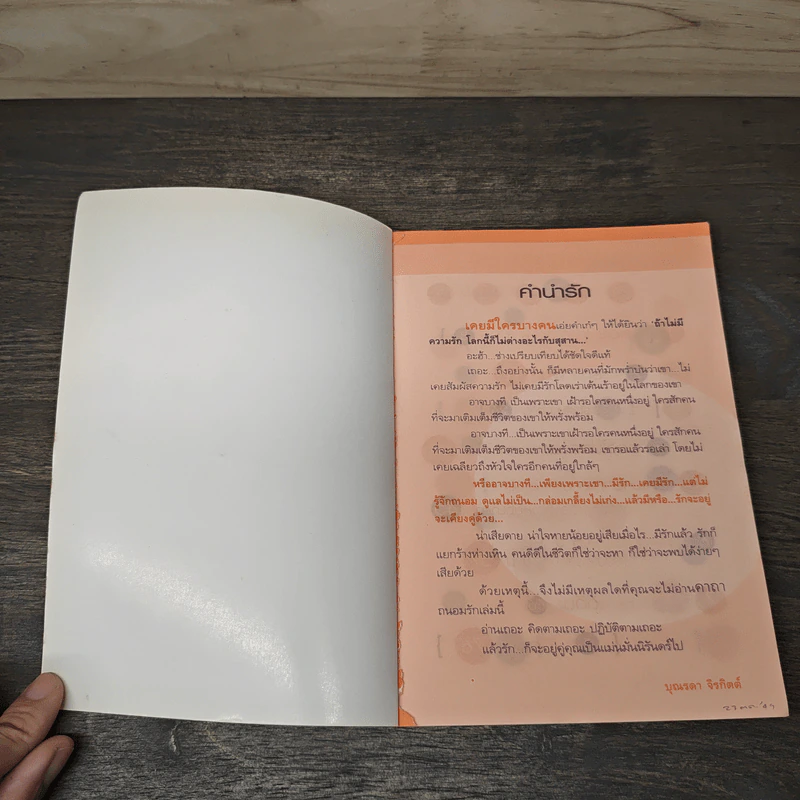 คำนำรัก
เคยมีใครบางคนเอ่ยคำเก๋ๆ ให้ได้ยินว่า 'ถ้าไม่มี
ความรัก โลกนี้ก็ไม่ต่างอะไรกับสุสาน...'
อะฮ้า...ช่างเปรียบเทียบได้ชัดใจดีแท้
เถอะ...ถึงอย่างนั้น ก็มีหลายคนที่มักพร่ำบ่นว่าเขา...ไม่
เคยสัมผัสความรัก ไม่เคยมีรักโลดเร่าเต้นเร้าอยู่ในโลกของเขา
อาจบางที เป็นเพราะเขา เฝ้ารอใครคนหนึ่งอยู่ ใครสักคน
ที่จะมาเติมเต็มชีวิตของเขาให้พรั่งพร้อม
อาจบางที...เป็นเพราะเขาเฝ้ารอใครคนหนึ่งอยู่ ใครสักคน
ที่จะมาเติมเต็มชีวิตของเขาให้พรั่งพร้อม เขารอแล้วรอเล่า โดยไม่
เคยเฉลียวถึงหัวใจใครอีกคนที่อยู่ใกล้ๆ
หรืออาจบางที...เพียงเพราะเขา...มีรัก...เคยมีรัก...แต่ไม่
รู้จักถนอม ดูแลไม่เป็น...กล่อมเกลี้ยงไม่เก่ง...แล้วมีหรือ...รักจะอยู่
จะเคียงคู่ด้วย...
น่าเสียดาย น่าใจหายน้อยอยู่เสียเมื่อไร...มีรักแล้ว รักก็
แยกร้างห่างเหิน คนดีดีในชีวิตก็ใช่ว่าจะหา ก็ใช่ว่าจะพบได้ง่ายๆ
เสียด้วย
ด้วยเหตุนี้...จึงไม่มีเหตุผลใดที่คุณจะไม่อ่านคาถา
ถนอมรักเล่มนี้
อ่านเถอะ คิดตามเถอะ ปฏิบัติตามเถอะ
แล้วรัก...ก็จะอยู่คู่คุณเป็นแม่นมั่นนิรันดร์ไป
บุณรดา จิรกิตต์